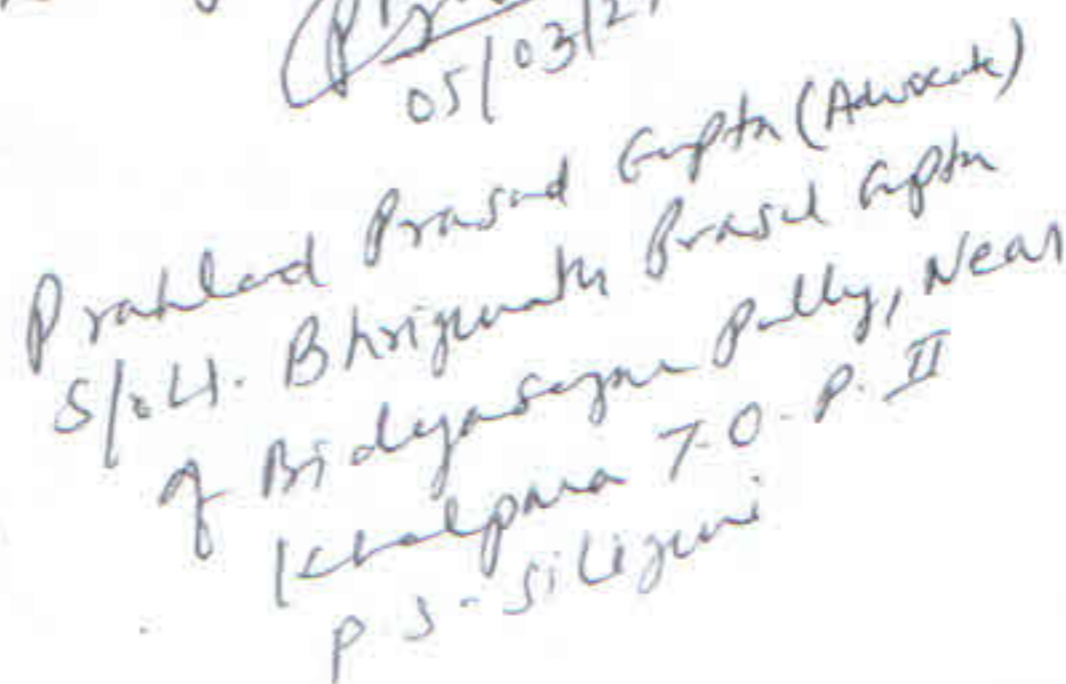 05/03/2
Prahlad Prasad Gupta (Advocate)
S/o Lt. Bhrigunath Prasad Gupta
of Bidyasagar Pally, Near
Khalpara T.O.P. II
P.S - Siliguri